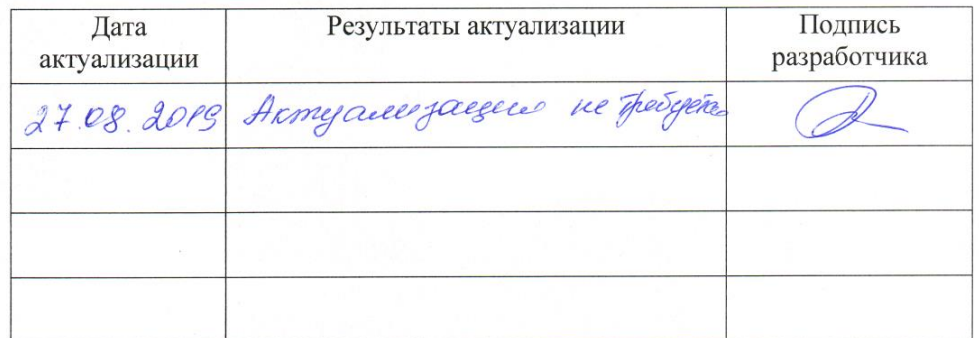 Дата актуализации
Результаты актуализации
Подпись разработчика
27.08.2019 Актуализации не требуется